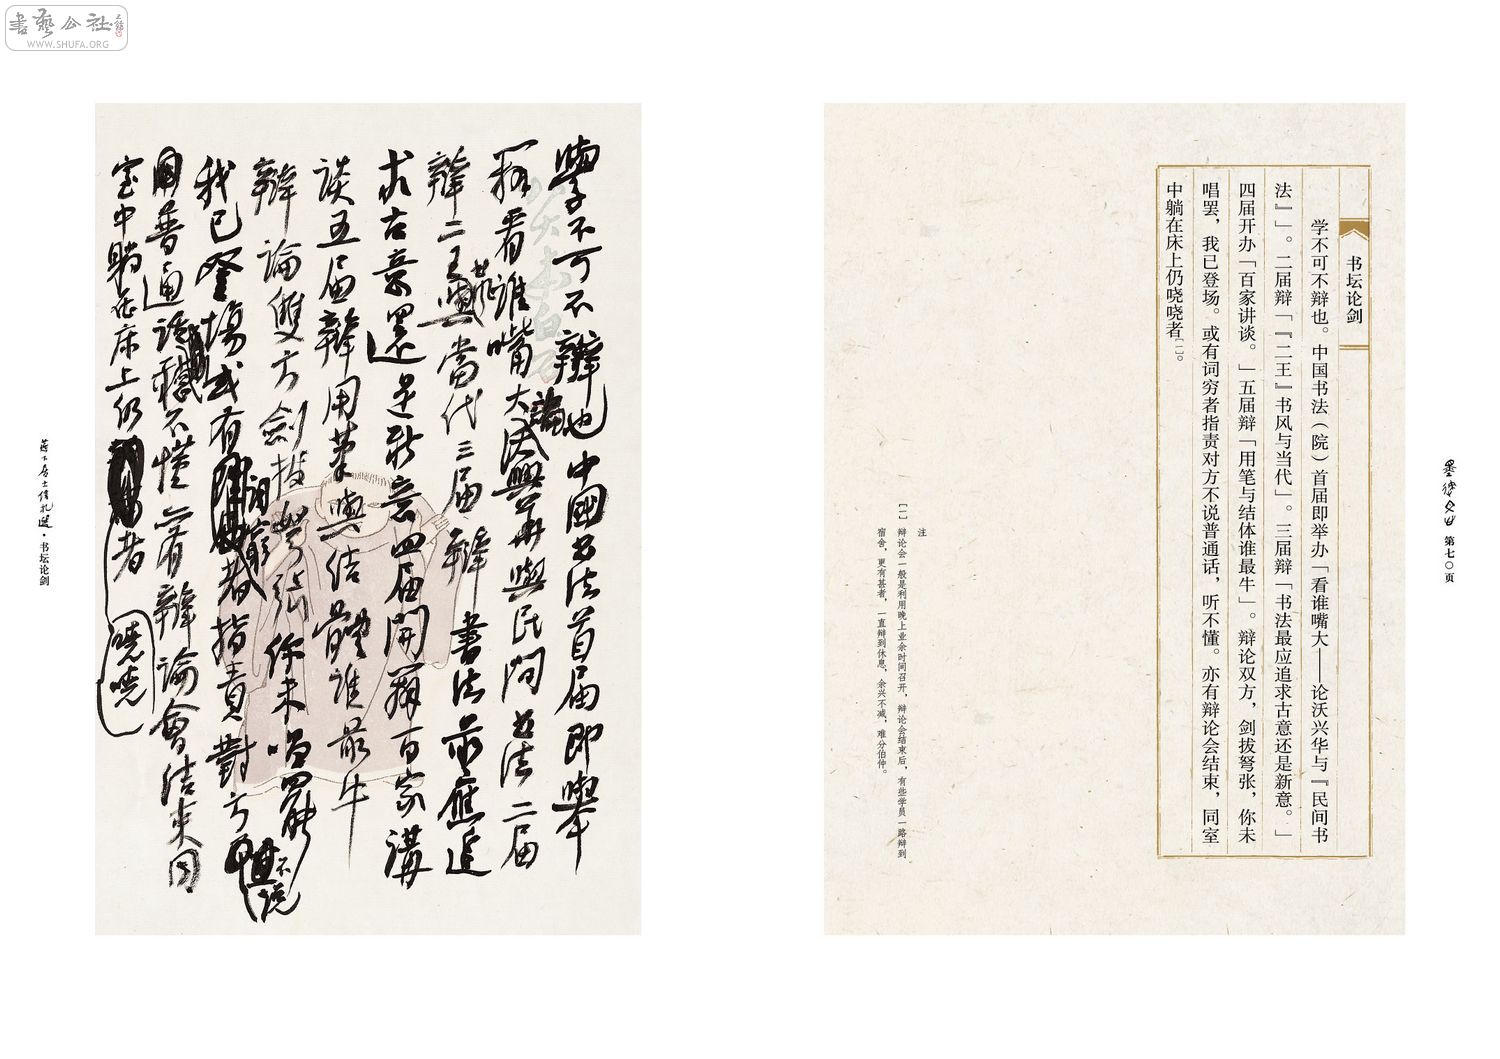 書藝公社
WWW.SHUFA.ORG
第七〇页
书坛论剑
学不可不辩也。中国书法（院）首届即举办「看谁嘴大——论沃兴华与『民间书
法』」。二届辩「『二王』书风与当代」。三届辩「书法最应追求古意还是新意。」
四届开办「百家讲谈。」五届辩「用笔与结体谁最牛」。辩论双方，剑拔弩张，你未
唱罢，我已登场。或有词穷者指责对方不说普通话，听不懂。亦有辩论会结束，同室
中躺在床上仍哓哓者［一］。
注
［一］ 辩论会一般是利用晚上业余时间召开，辩论会结束后，有些学员一路辩到
宿舍，更有甚者，一直辩到休息，余兴不减，难分伯仲。
學不可不辯也中國书法首届即舉
辦看谁嘴大論沃興華與民间书法二届
辯二王书風與當代三届辯書法最應追
求古意還是新意四届開辦百家講
谈五届辯用筆與结體谁最牛
辯論雙方劍拔弩张你未唱罷
我已登場或有词窮者指責對方不说
普通话聽不懂亦有辯論會结束同
室中躺在床上仍哓哓者
居士信札選·书坛论剑